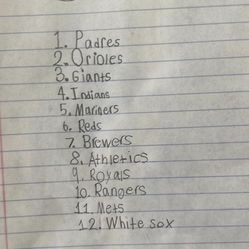 1. Padres
2. Orioles
3. Giants
4. Indians
5. Mariners
6. Reds
7. Brewers
8. Athletics
9. Royals
10. Rangers
11. Mets
12. White sox